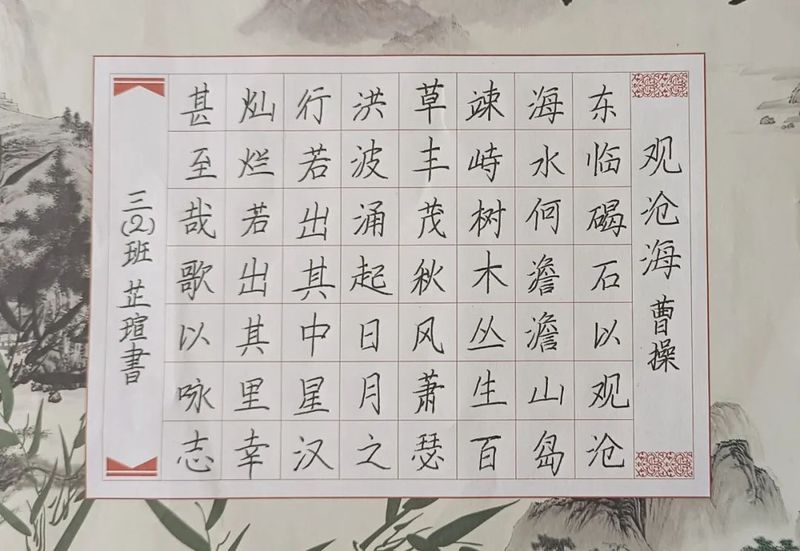 观沧海 曹操
东临碣石以观沧
海水何澹澹山岛
竦峙树木丛生百
草丰茂秋风萧瑟
洪波涌起日月之
行若出其中星汉
灿烂若出其里幸
甚至哉歌以咏志
三(2)班 芷瑄書